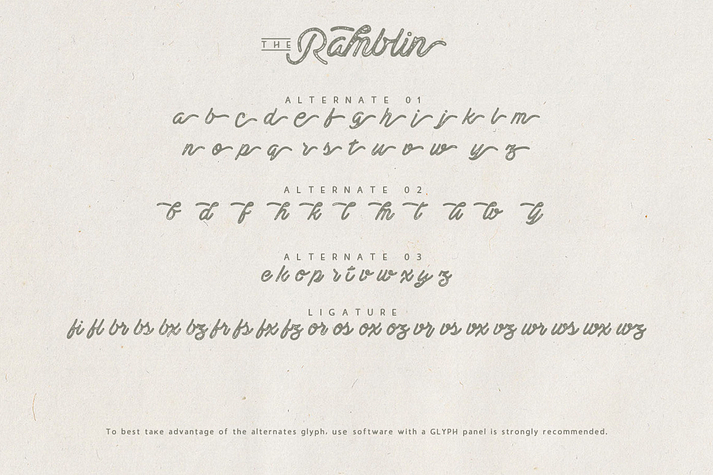 THE Ramblin
ALTERNATE 01
a b c d e f g h i j k l m
n o p q r s t u v w y z
ALTERNATE 02
b d f h k l m t u w y
ALTERNATE 03
e k o p r t v w x y z
LIGATURE
fi fl br bs bx bz fr fs fx fz or os ox oz vr vs vx vz wr ws wx wz
To best take advantage of the alternates glyph, use software with a GLYPH panel is strongly recommended.